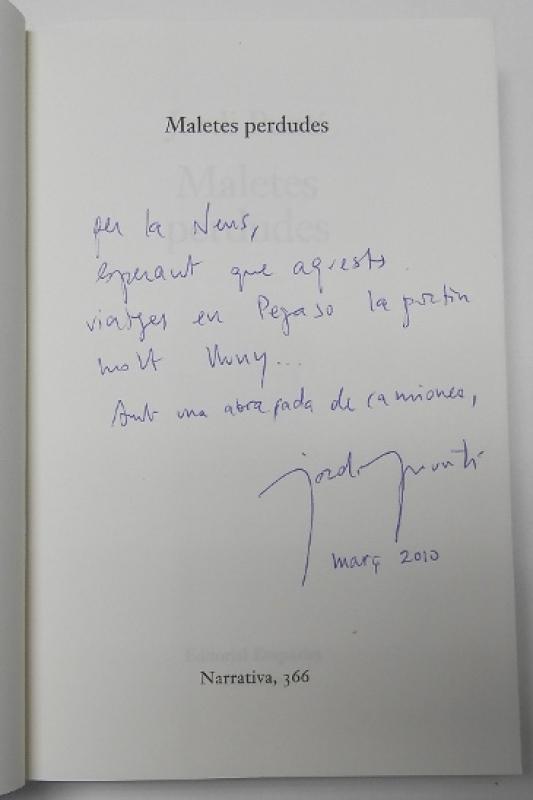 Maletes perdudes
per la Neus,
esperant que aquests
viatges en Pegaso la portin
molt lluny...
Amb una abraçada de camiones,
jordi puntí
març 2010
Editorial Empúries
Narrativa, 366